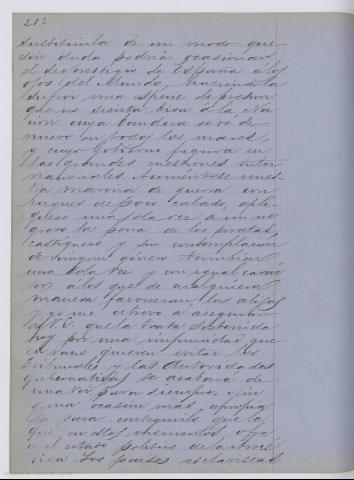 212
sustituirla de un modo que
sin duda podria ocasionar
el desprestigio de España á los
ojos del Mundo, haciendola
sufrir una especie de presion
que no sienta bien á la Na
cion cuya bandera se vé de
nuevo en todos los mares,
y cuyo Gobierno figura en
las grandes cuestiones inter
nacionales. Aumentese nues
tra marina de guerra con
buques de poco calado, apli
quese una sola vez á un ne
grero la pena de los piratas,
castiguese y sin contemplacion
de ningun genero tambien
una sola vez y con igual
á los que de cualquiera
manera favorezcan los alijos
y yo me atrevo á asegurar
á V.E. que la trata sostenida
hoy por una impunidad que
en vano quieren evitar los
Tribunales y las Autoridades
Gubernativas se acabará de
una vez para siempre. Nin
guna ocasion mas apropia
da para conseguirlo que la
que en estos momentos ofre
ce el estado politico de la Ame
rica. Los paises esclavistas